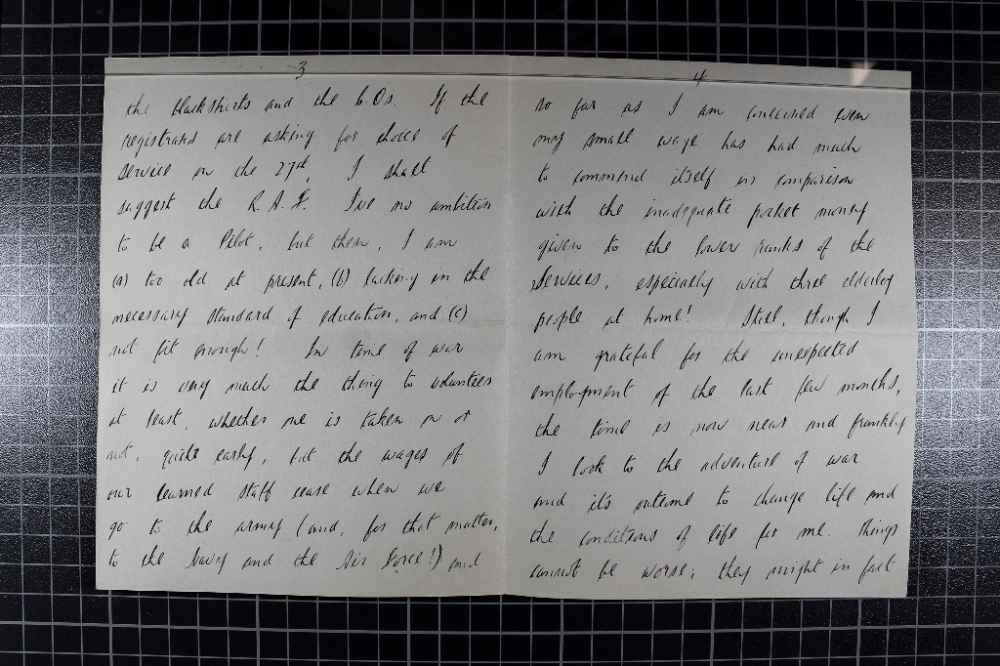 3
the blackshirts and the C.Os. If the
registrars are asking for choice of
service on the 27th, I shall
suggest the R.A.F. I've no ambition
to be a Pilot, but then, I am
(a) too old at present, (b) lacking in the
necessary standard of education, and (c)
not fit enough! In time of war
it is very much the thing to volunteer
at least, whether one is taken on or
not, quite early, but the wages of
our learned staff cease when we
go to the army (and, for that matter,
to the Navy and the Air Force!) and
4
so far as I am concerned even
my small wage has had much
to commend itself in comparison
with the inadequate pocket money
given to the lower ranks of the
Services, especially with three elderly
people at home! Still, though I
am grateful for the unexpected
employment of the last few months,
the time is now near and frankly
I look to the adventure of war
and it's outcome to change life and
the conditions of life for me. Things
cannot be worse; they might in fact